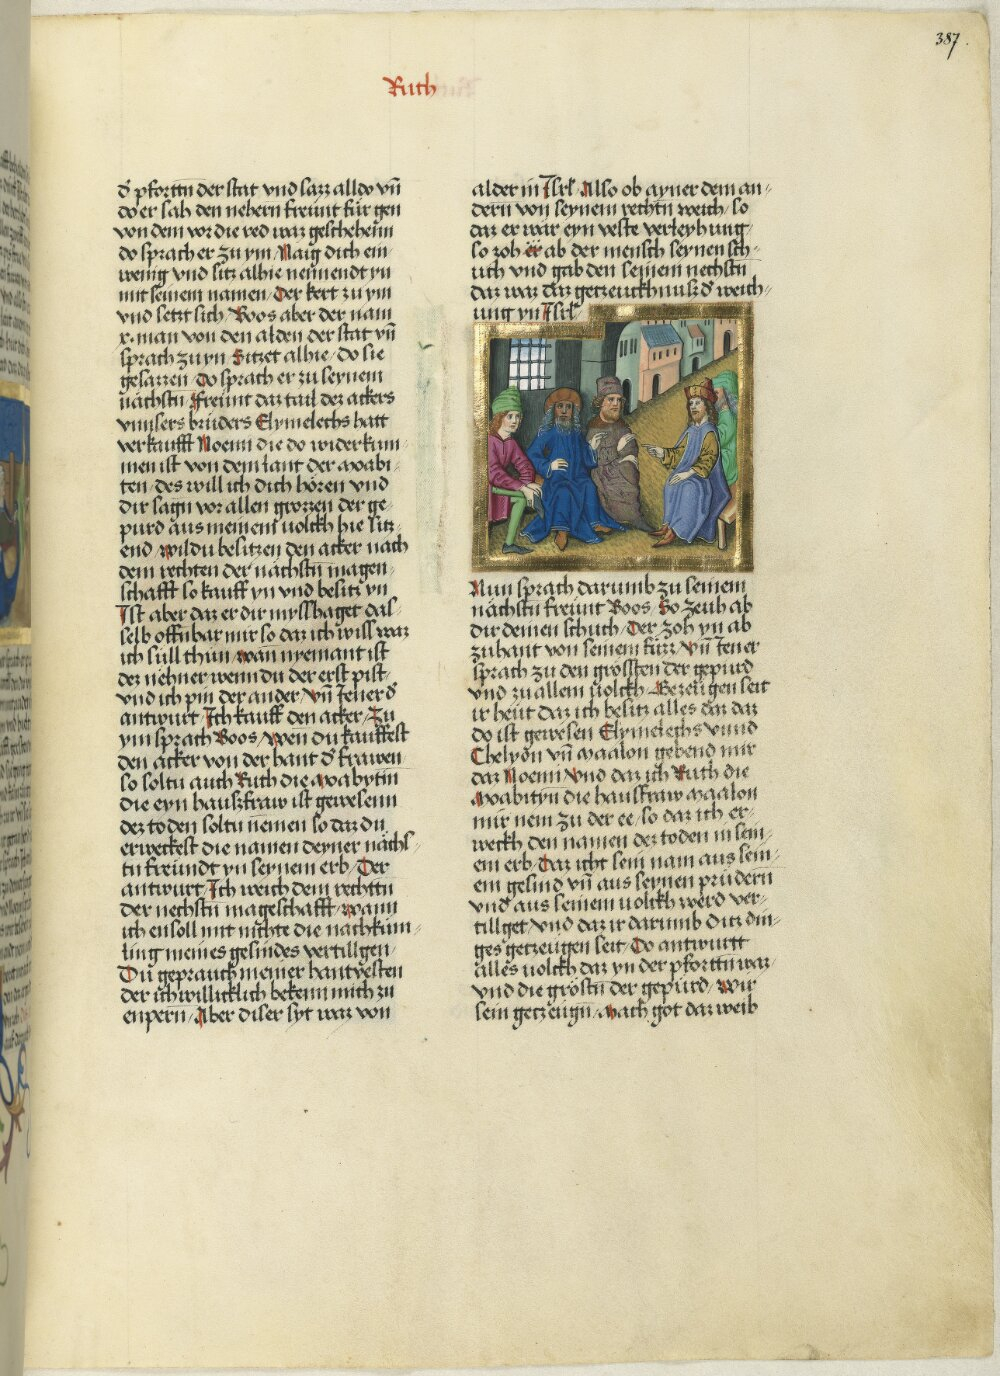 387.
Ruth
d̾ pforttn der stat vnd sazz alldo vn̄
do er sah den nehern freünt für gen
von dem vor die red waz geschehenn
do sprach er zu ym Naig dich ein
wenig vnd sitz alhie nennendt yn
mit seinem namen / Der kert zu ym
vnd setzt sich / Boos aber der nam
x. man von den alden der stat vn̄
sprach zu yn Sitzet alhie / do sie
gesazzen / Do sprach er zu seynem
nächstn Freünt daz tail dez ackers
vnnsers brüders Elymelechs hatt
verkaufft Noemi die do widerkum
men ist von dem lant der moabi/
ten / des will ich dich hören vnd
dir sagn vor allen grozzen der ge/
purd aus meinem uolckh hie sitz/
end / wildu besitzen den acker nach
dem rechten der nächstn magen/
schafft so kauff yn vnd besitz yn
Ist aber daz er dir mysshaget das/
selb offnbar mir so daz ich wiss waz
ich süll thün / wan nyemant ist
dez nehner wenn du der erst pist /
vnd ich pin der ander / Vn̄ Jener d̾
antwurt Ich kauff den acker / Zu
ym sprach Boos / Wen du kauffest
den acker von der hant d̾ frawen
so soltu auch Ruth die Moabytin
die eyn hauszfraw ist gewesenn
dez toden soltu nemen so daz du
erweckest die namen deyner nächs/
tn freündt yn seynem erb / Der
antwurt / Ich weich dem rechttn
der nechstn mageschafft / wann
ich ensoll mit nichte die nachküm/
ling meines gesindes vertillgen /
Dü geprauch meiner hantvesten
der ich willicklich bekenn mich zu
enpern / Aber diser syt waz von
alder in Isrl̃ Allso ob ayner dem an/
dern von seynem rechtn weich / so
daz er wär eyn veste verleyhung /
so zoh er ab der mensch seynen sch/
uch vnd gab den seinem nechstn
daz waz daz getzeuckhnusz d̾ weich/
ung yn Isrl̃
Nun sprach darumb zu seinem
nächstn freünt Boos So zeuh ab
dir deinen schuch / Der zoh yn ab
zuhant von seinem füzz / Vn̄ Jener
sprach zu den grössten der gepurd
vnd zu allem uolckh / Bezeügen seit
ir heüt daz ich besitz alles daz daz
do ist gewesen Elymelechs vnnd
Chelyon vn̄ Maalon gebend mir
daz Noemi Vnd daz ich Ruth die
Moabityn die hausfraw Maalon
mir nem zu der ee / so daz ich er/
weckh den namen dez toden in sein/
em erb / Daz icht sein nam aus sein/
em gesind vn̄ aus seynen prüdern
vnd aus seinem uolckh werd ver/
tillget / vnd daz ir darumb ditz din/
ges getzeugen seit / Do antwurtt
alles uolckh daz yn der pforttn waz /
vnd die gröstn der gepurd / Wir
sein getzeugn / Mach got daz weib